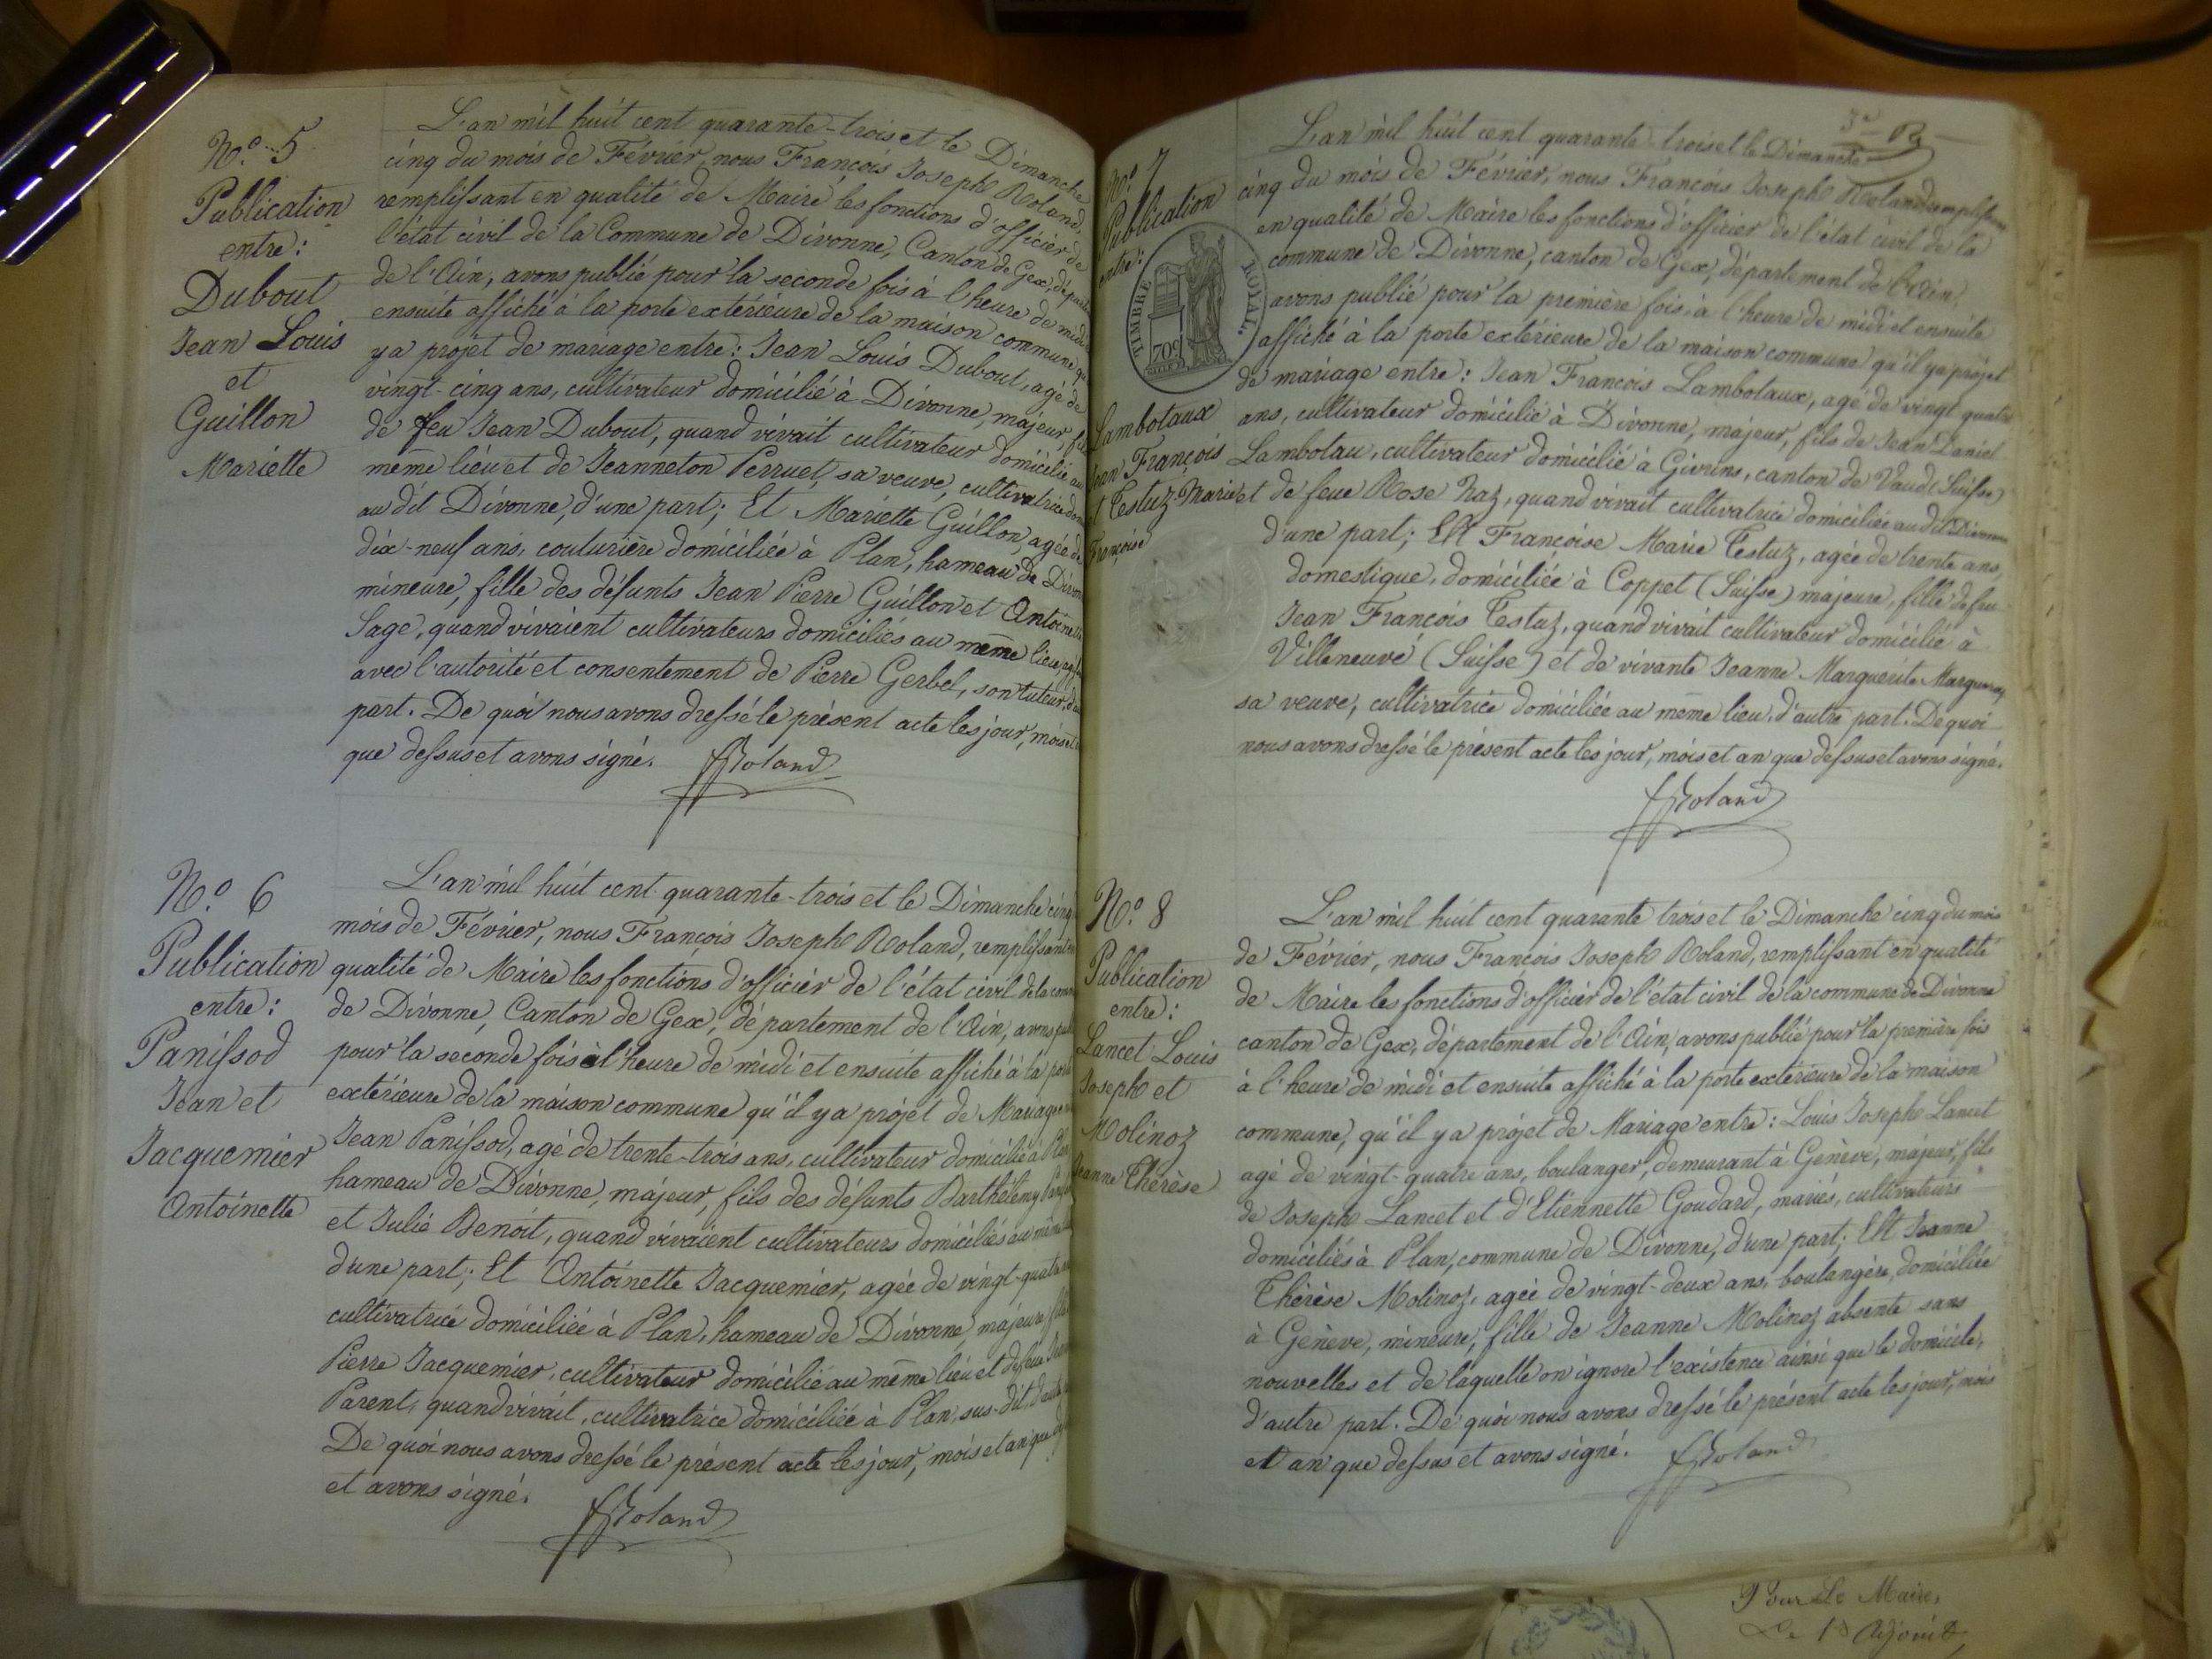 N.° 5
Publication
entre:
Dubout
Jean Louis
et
Guillon
Mariette
L'an mil huit cent quarante-trois et le Dimanche
cinq du mois de Février, nous François Joseph Roland,
remplissant en qualité de Maire les fonctions d'officier de
l'état civil de la Commune de Divonne, Canton de Gex,
de l'Ain, avons publié pour la seconde fois à l'heure de midi
ensuite affiché à la porte extérieure de la maison commune
y a projet de mariage entre: Jean Louis Dubout, agé de
vingt-cinq ans, cultivateur domicilié à Divonne, majeur,
de feu Jean Dubout, quand vivait cultivateur domicilié au
même lieu et de Jeanneton Perruet, sa veuve, cultivatrice
au dit Divonne, d'une part; Et Mariette Guillon, agée de
dix-neuf ans, couturière domiciliée à Plan, hameau de
mineure, fille des défunts Jean Pierre Guillon et
Sage, quand vivaient cultivateurs domiciliés au même lieu,
avec l'autorité et consentement de Pierre Gerbel, son tuteur,
part. De quoi nous avons dressé le présent acte les jour, mois et
que dessus et avons signé. Roland
N.° 6
Publication
entre:
Panissod
Jean et
Jacquemier
Antoinette
L'an mil huit cent quarante-trois et le Dimanche cinq
mois de Février, nous François Joseph Roland,
qualité de Maire les fonctions d'officier de l'état civil de la
de Divonne, Canton de Gex, département de l'Ain, avons
pour la seconde fois à l'heure de midi et ensuite affiché à la
extérieure de la maison commune qu'il y a projet de Mariage
Jean Panissod, agé de trente-trois ans, cultivateur domicilié à
hameau de Divonne, majeur, fils des défunts Barthélemy
et Julie Benoit, quand vivaient cultivateurs domiciliés au
d'une part; Et Antoinette Jacquemier, agée de vingt-quatre
cultivatrice domiciliée à Plan, hameau de Divonne, majeure,
Pierre Jacquemier, cultivateur domicilié au même lieu et de feue
Parent, quand vivait, cultivatrice domiciliée à Plan, sus-dit,
De quoi nous avons dressé le présent acte les jour, mois et an que
et avons signé.
Roland
3e
N.° 7
Publication
entre:
TIMBRE ROYAL.
70c
Lambotaux
Jean François
et Testuz Marie
Françoise
L'an mil huit cent quarante trois et le Dimanche
cinq du mois de Février, nous François Joseph Roland remplissant
en qualité de Maire les fonctions d'officier de l'état civil de la
commune de Divonne, canton de Gex, département de l'Ain,
avons publié pour la première fois, à l'heure de midi et ensuite
affiché à la porte extérieure de la maison commune qu'il y a projet
de mariage entre: Jean François Lambotaux, agé de vingt quatre
ans, cultivateur domicilié à Divonne, majeur, fils de Jean Daniel
Lambotau, cultivateur domicilié à Givrins, canton de Vaud (Suisse)
et de feue Rose Naz, quand vivait cultivatrice domiciliée au dit Divonne
d'une part; Et Françoise Marie Testuz, agée de trente ans,
domestique, domiciliée à Coppet (Suisse) majeure, fille de feu
Jean François Testuz, quand vivait cultivateur domicilié à
Villeneuve (Suisse) et de vivante Jeanne Marguerite
sa veuve, cultivatrice domiciliée au même lieu, d'autre part. De quoi
nous avons dressé le présent acte les jour, mois et an que dessus et avons signé.
Roland
N.° 8
Publication
entre:
Lancet Louis
Joseph et
Molinoz
Jeanne Thérèse
L'an mil huit cent quarante trois et le Dimanche cinq du mois
de Février, nous François Joseph Roland, remplissant en qualité
de Maire les fonctions d'officier de l'état civil de la commune de Divonne
canton de Gex, département de l'Ain, avons publié pour la première fois
à l'heure de midi et ensuite affiché à la porte extérieure de la maison
commune, qu'il y a projet de Mariage entre: Louis Joseph Lancet
agé de vingt-quatre ans, boulanger, demeurant à Genève, majeur, fils
de Joseph Lancet et d'Etiennette Goudard, mariés, cultivateurs
domiciliés à Plan, commune de Divonne, d'une part; Et Jeanne
Thérèse Molinoz, agée de vingt-deux ans, boulangère, domiciliée
à Genève, mineure, fille de Jeanne Molinoz absente sans
nouvelles et de laquelle on ignore l'existence ainsi que le domicile,
d'autre part. De quoi nous avons dressé le présent acte les jour, mois
et an que dessus et avons signé. Roland
Pour Le Maire,
Le 1er Adjoint